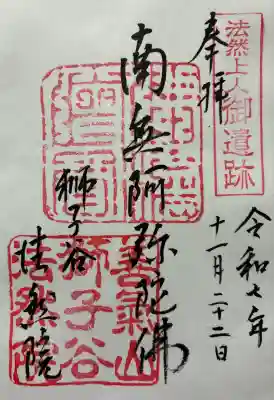 法然上人御遺跡
奉拝
南無阿弥陀佛
獅子谷
法然院
令和七年
十一月二十二日
善氣山
獅子谷
法然院